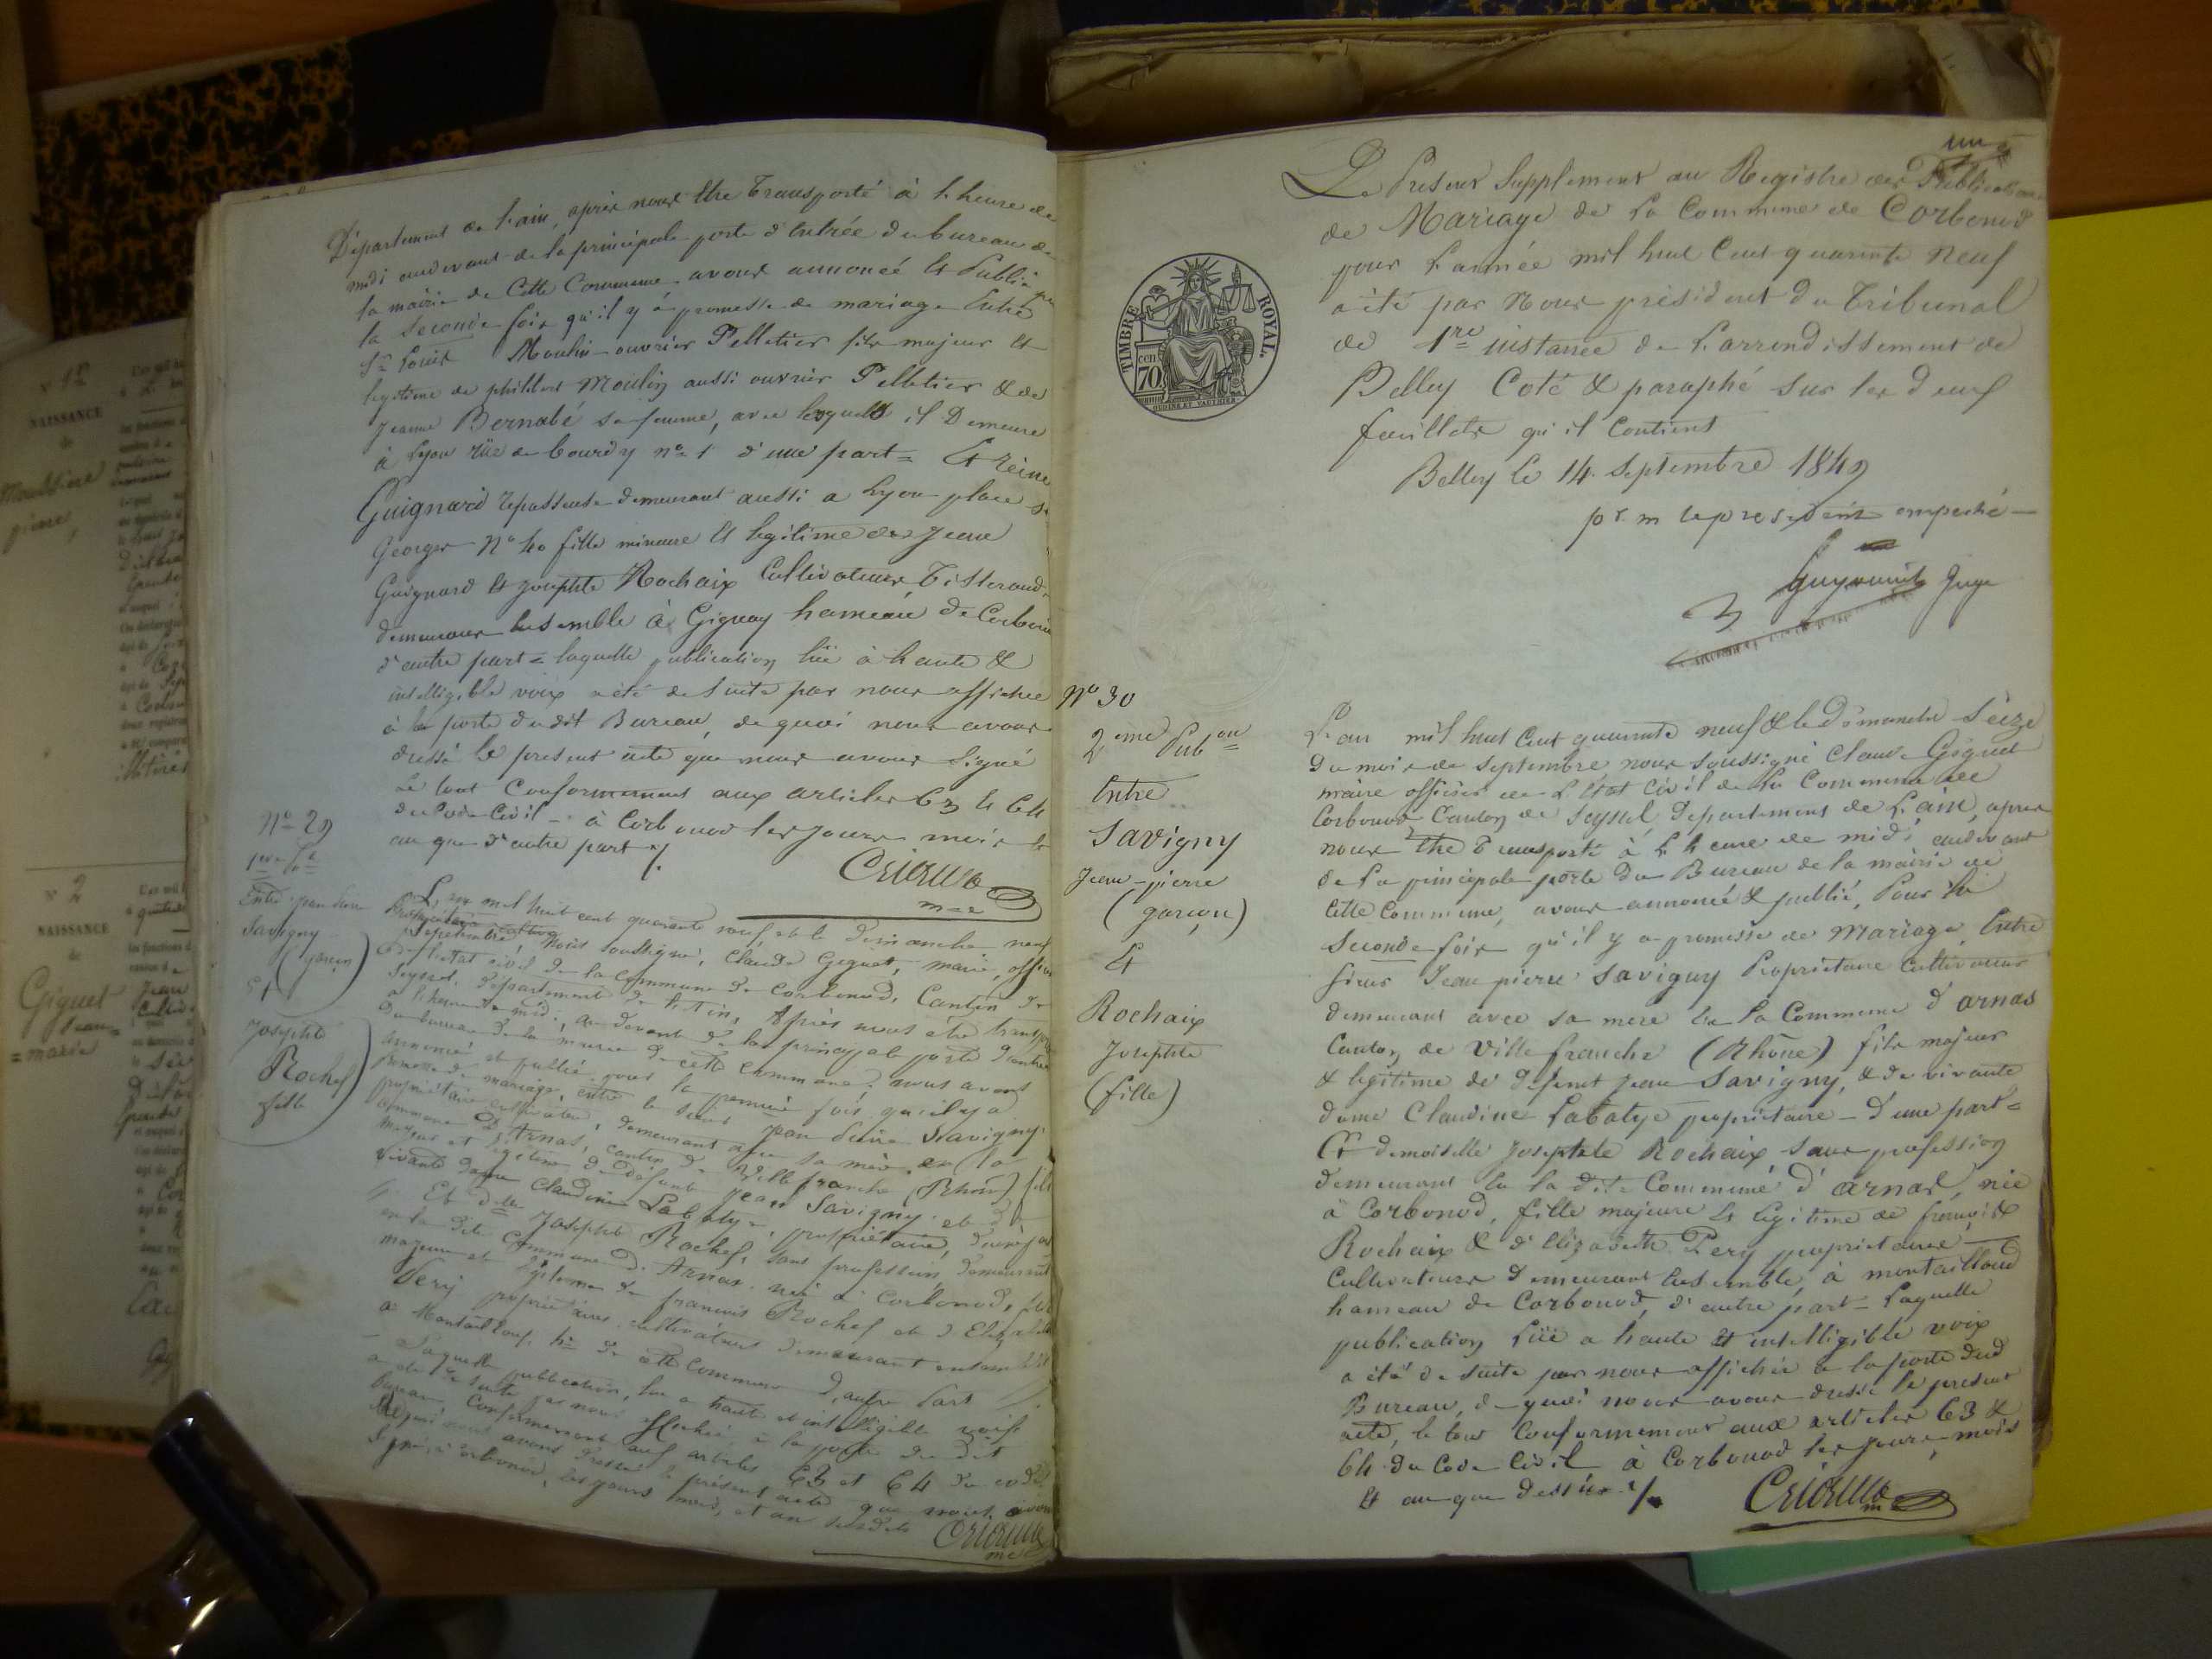 Département de l'ain, après nous être Transporté à l'heure de
midi audevant de la principale porte d'entrée du bureau de
la mairie de Cette Commune avons annoncé et Publié pr
la seconde fois qu'il y a promesse de mariage Entre
Sr Louis Moulin ouvrier Pelletier fils majeur et
legitime de philibert Moulin aussi ouvrier Pelletier & de
Jeanne Bernabé sa femme, avec lesquels il Demeure
à Lyon rüe de bourdy no 1 d'une part = Et reine
Guignard repasseuse demeurant aussi a Lyon place St
Georges No 40 fille mineure et legitime de Jean
Guignard et Josephte Rochaix Cultivateurs Tisserands
demeurant Ensemble à Gignay hameau de Corbonod
d'autre part = laquelle publication lüe à haute &
intelligible voix a été de suite par nous affichée
à la porte du dit Bureau, de quoi nous avons
dressé le present acte que nous avons Signé
Le tout Conformement aux articles 63 et 64
du Code Civil - à Corbonod les jours mois et
an que d'autre part ./.
m=e
No 29
1ere Pon
Entre jean pierre
Savigny
(garçon)
Et
Josephte
Rochef
fille
L'an mil huit cent quarante neuf, et le dimanche neuf
septembre, nous soussigné, Claude Gignet, maire, officier
de l'état civil de la commune de Corbonod, Canton de
Seyssel, département de l'Ain, Après nous être transporté
à l'heure de midi, au devant de la principale porte d'entrée
du bureau de la mairie de cette commune, nous avons
annoncé et publié pour la première fois qu'il y a
promesse de mariage entre le sieur jean pierre Savigny
propriétaire cultivateur, demeurant avec sa mère en la
commune d'Arnas, canton de Villefranche (Rhône) fils
majeur et légitime de défunt Jean Savigny et de
vivante dame Claudine Labatye, propriétaire, d'une part
Et dlle Josephte Rochef, sans profession, demeurant
en la dite Commune d'Arnas, née à Corbonod, fille
majeure et légitime de françois Rochef et d'Elizabeth
Pery propriétaires cultivateurs demeurant ensemble
à Montailloud hau de cette Commune d'autre part
Laquelle publication, lue a haute et intelligible voix
a été de suite par nous affichée à la porte du dit
bureau Conformement aux articles 63 et 64 du code
De quoi nous avons dressé le présent acte que nous avons
signé, à Corbonod, les jours mois, et an susdits
me
un
Le Present Supplement au Registre des Publications
de Mariage de la Commune de Corbonod
pour L'année mil huit Cent quarante Neuf
a été par Nous président du Tribunal
de 1re instance de L'arrondissement de
Belley Coté & paraphé sur les deux
feuillets qu'il Contient
Belley le 14. Septembre 1849
pr. m le president empeché
Juge
TIMBRE ROYAL.
70 cen
No 30
2eme Pubon
Entre
Savigny
Jean-pierre
(garçon)
Et
Rochaix
Josephte
(fille)
L'an mil huit Cent quarante neuf & le Dimanche Seize
du mois de Septembre nous Soussigné Claude Gignet
maire officier de L'Etat Civil de la Commune de
Corbonod Canton de Seyssel, Département de L'ain, apres
nous être Transporté à L'heure de midi audevant
de la principale porte du Bureau de la mairie de
Cette Commune, avons annoncé & publié, Pour la
Seconde fois qu'il y a promesse de Mariage Entre
sieur Jean pierre Savigny Propriétaire Cultivateur
demeurant avec sa mere En la Commune d'arnas
Canton de Villefranche (Rhône) fils majeur
& legitime de defunt Jean Savigny, & de vivante
dame Claudine Labatye propriétaire - D'une part =
Et demoiselle Josephte Rochaix sans profession
demeurant En la dite Commune d'arnas, née
à Corbonod, fille majeure et légitime de françois
Rochaix & d'Elizabeth Pery propriétaires
Cultivateurs demeurant Ensemble, à montailloud
hameau de Corbonod, d'autre part = Laquelle
publication Lüe a haute et intelligible voix
a été de suite par nous affichée à la porte dud
Bureau, de quoi nous avons dressé le present
acte, le tout Conformement aux articles 63 &
64 du Code Civil à Corbonod les jours, mois
et an que dessus ./.
N° 1er
NAISSANCE
de
N° 2
NAISSANCE
de
Giguet
Jean=
=marie